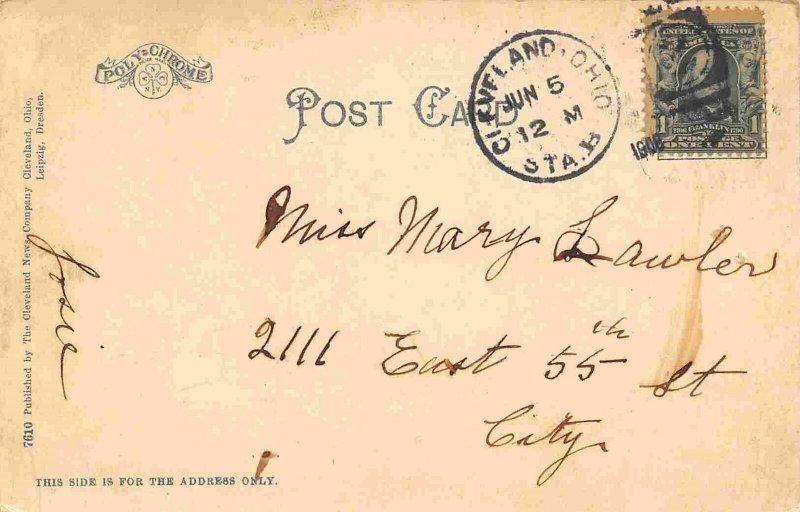 POLY-CHROME
POST CARD
CLEVELAND, OHIO
JUN 5
12 M
STA. B
UNITED STATES OF
AMERICA
FRANKLIN
POSTAGE
1 ONE CENT 1
Miss Mary Lawler
2111 East 55th St
City
Josie
7610 Published by The Cleveland News Company Cleveland, Ohio,
Leipzig, Dresden.
THIS SIDE IS FOR THE ADDRESS ONLY.